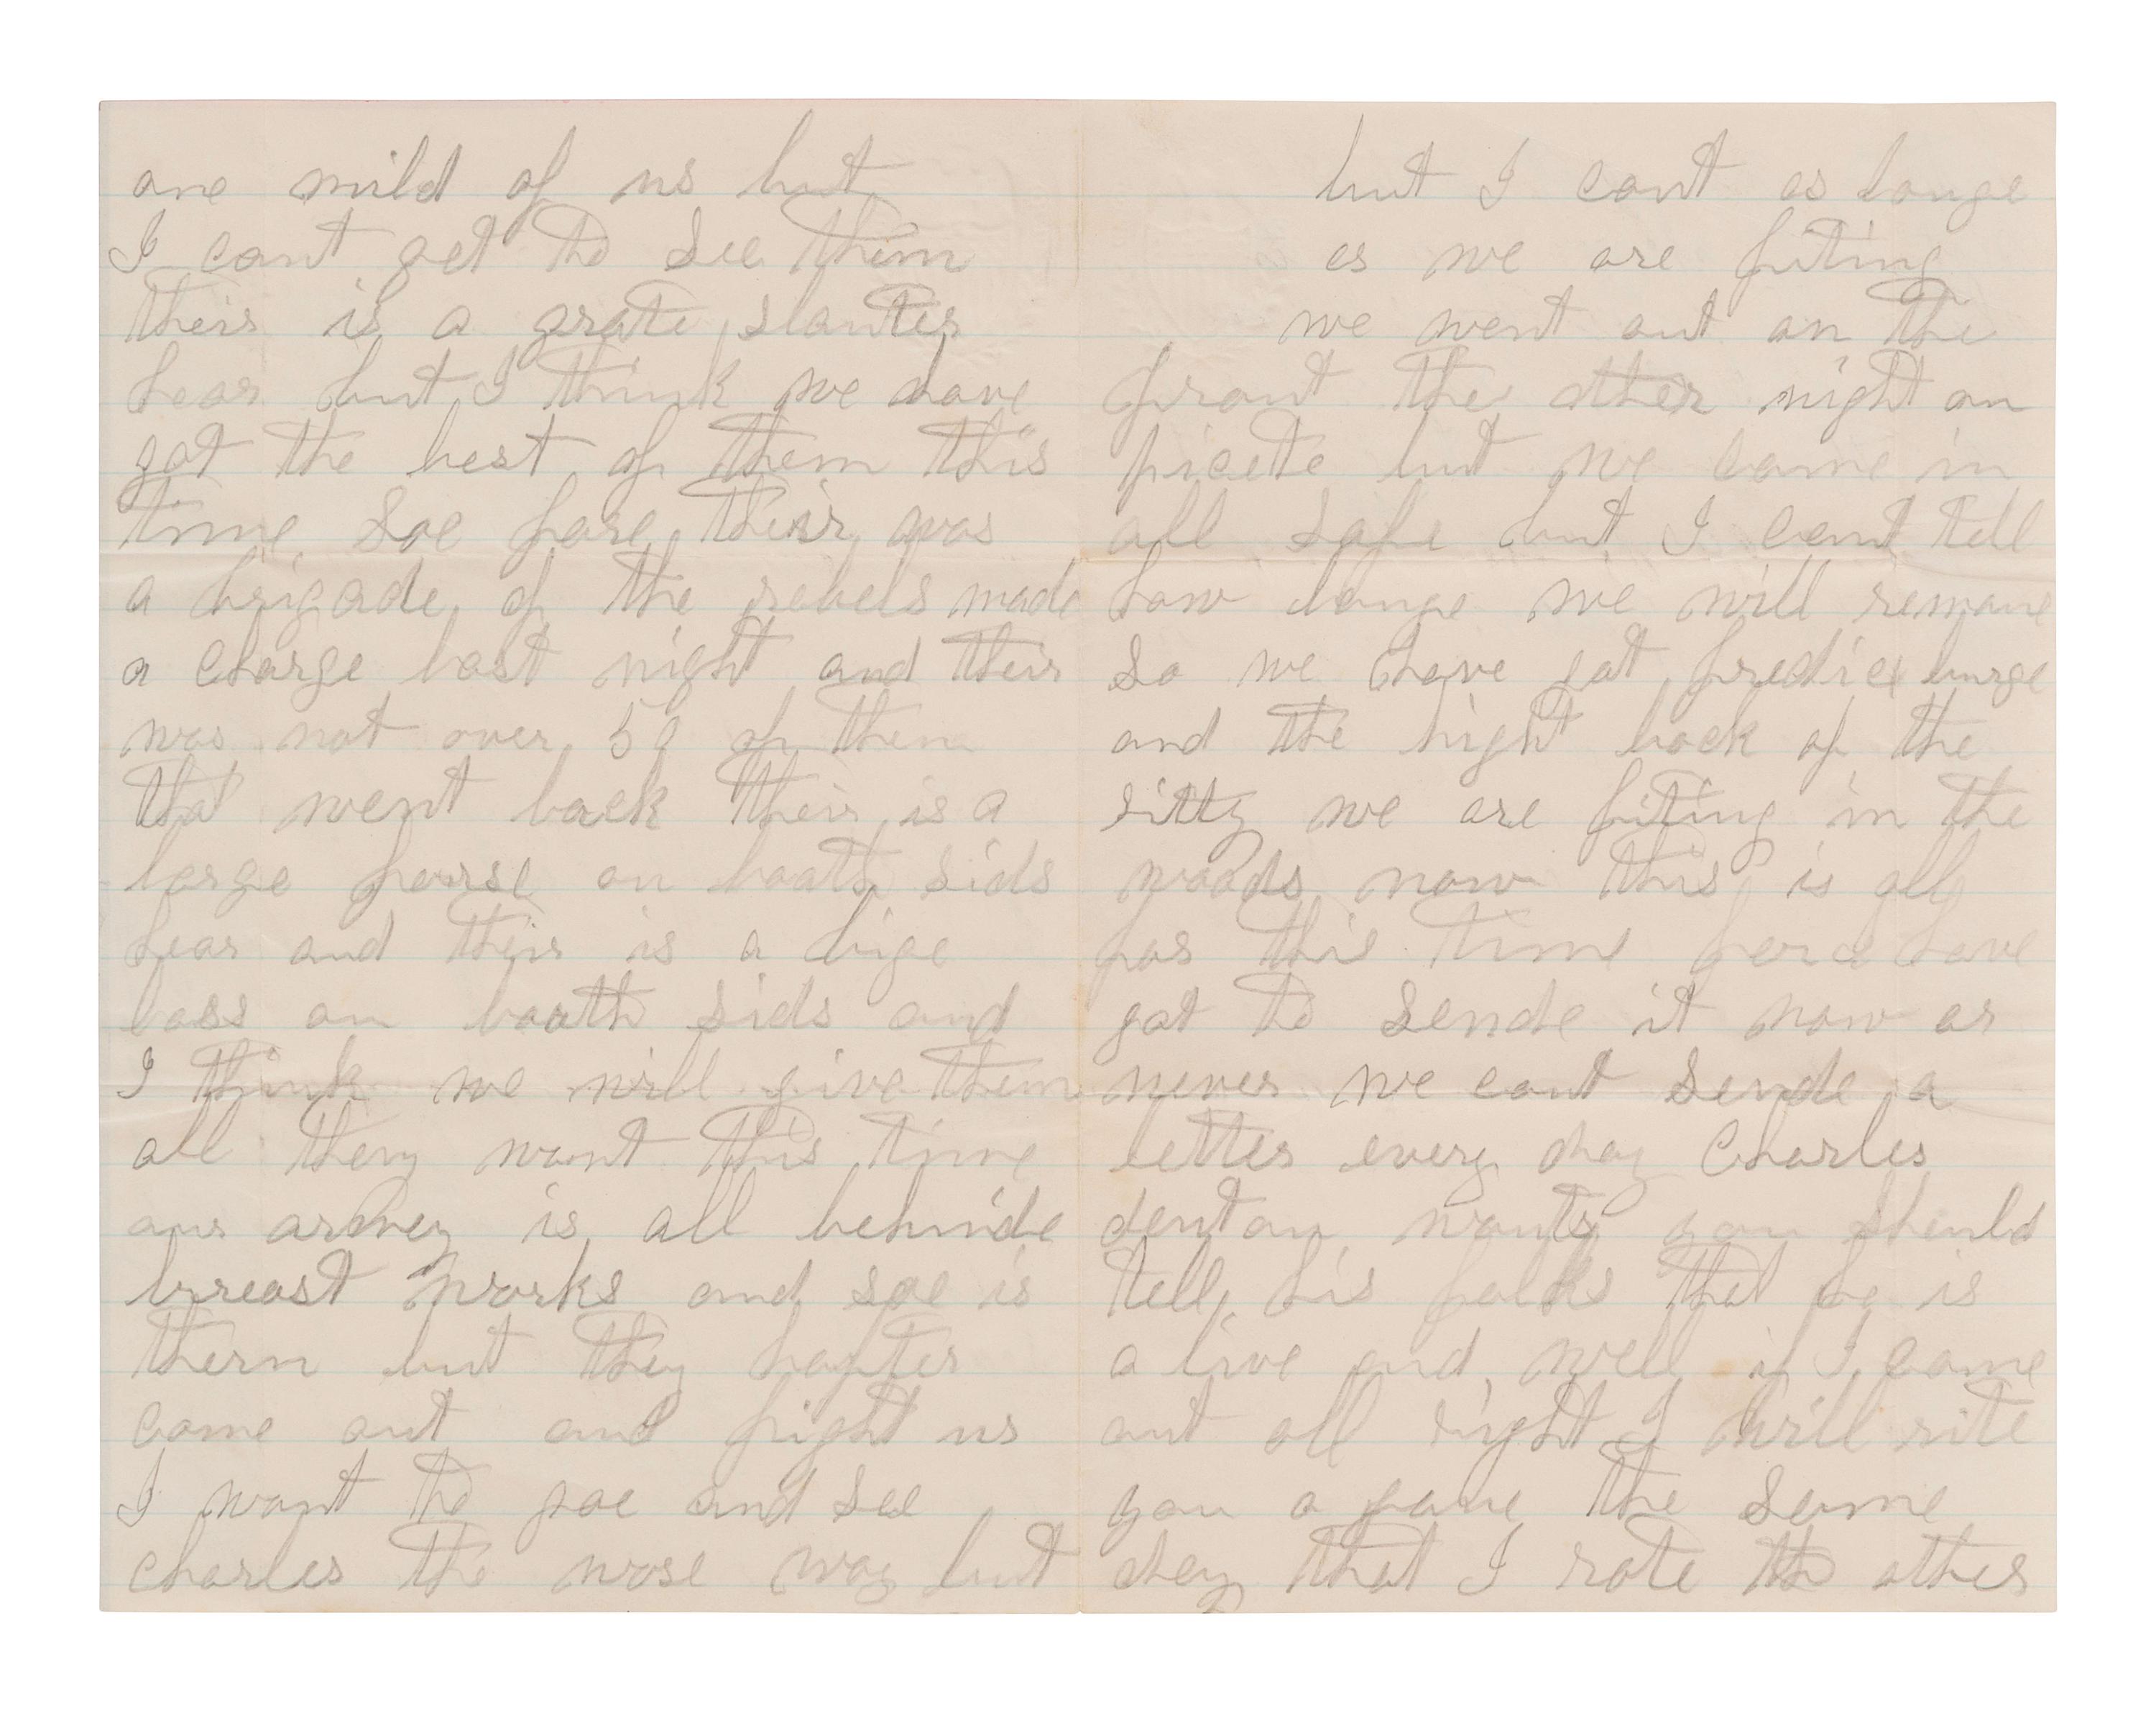 one mild of us but
I cant get to see them
their is a grate slauter
hear but I think we have
got the best of them this
time soe fare their was
a brigade of the rebels made
a charge last night and their
was not over 50 of them
that went back their is a
large forse on boath sids
hear and their is a bige
loss on boath sids and
I think we will give them
all they want this time
our armey is all behinde
brreast works and soe is
thern but they hafter
come out and fight us
I want to goe and see
charles the worse way but
but I cant as longe
as we are fiting
we went out on the
front the other night on
picete but we came in
all safe but I cant tell
how longe we will remane
so we have got fredicxburge
and the hight back of the
sitty we are fiting in the
woods now this is all
for this time for I have
got to sende it now or
never we cant sende a
letter every day Charles
denton wants you should
tell his folks that he is
a live and well if I come
out all right I will rite
you a gane the same
day that I rote the other